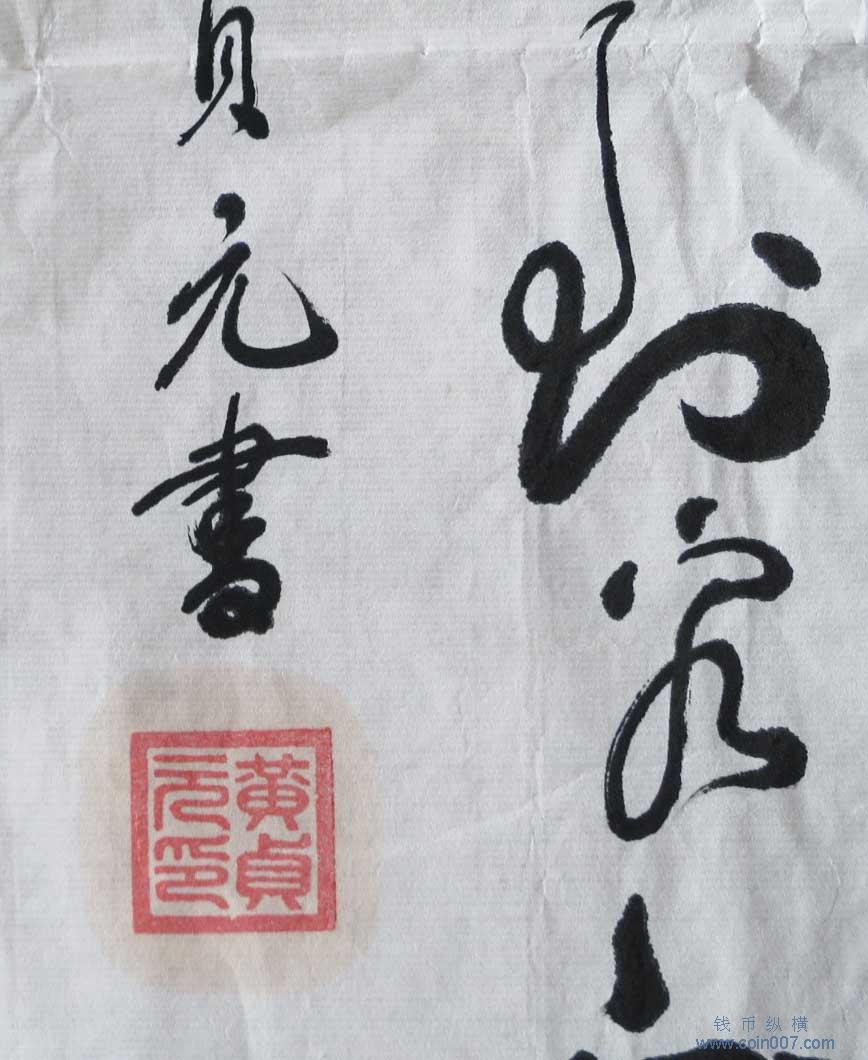 到客
元書
黄貞元印
钱币纵横
www.coin007.com